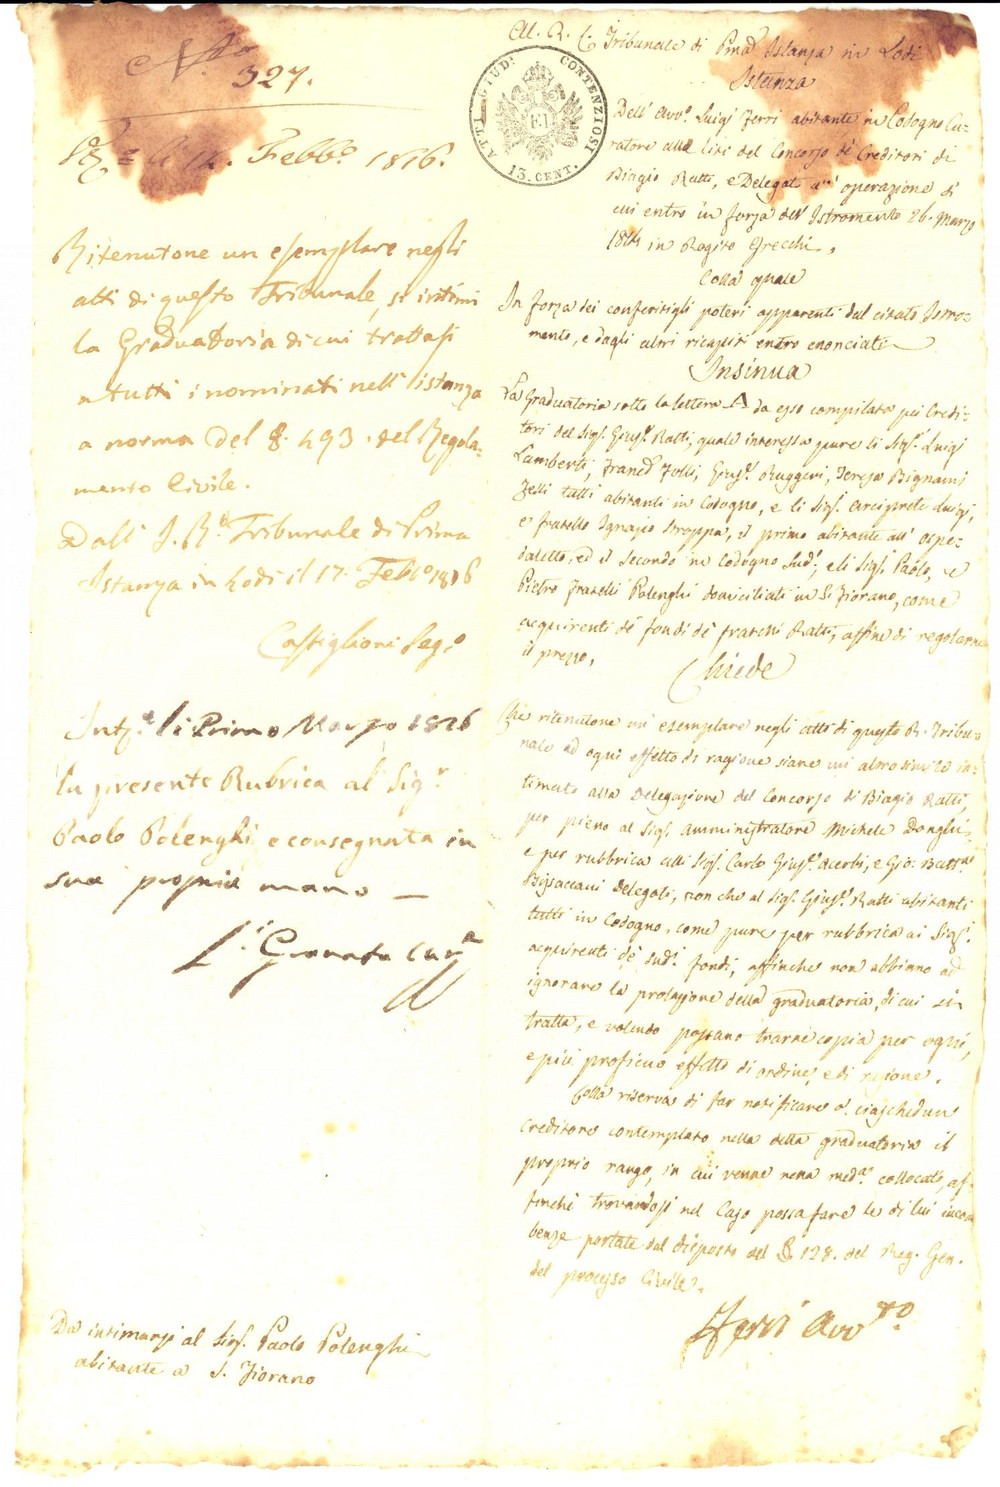 N.ro
327.
li 14. Febb.o 1816.
Ritenutone un esemplare negli
atti di questo Tribunale, si intimi
la Graduatoria di cui trattasi
a tutti i nominati nell'istanza
a norma del §. 493. del Regola-
mento Civile.
Dall' I. R.o Tribunale di Prima
Istanza in Lodi il 17. Feb.o 1816
Castiglioni Seg.o
Int.a li Primo Marzo 1816
la presente Rubrica al Sig.r
Paolo Polenghi e consegnata in
sue proprie mano —
Granata Cur
Da intimarsi al Sig.r Paolo Polenghi
abitante a S. Fiorano
ATTI GIUD. CONTENZIOSI
F.I
13. CENT.
All. R. C. Tribunale di Pma Istanza in Lodi
Istanza
Dell' Avv.o Luigi Ferri abitante in Codogno Cu-
ratore alle liti del Concorso de Creditori di
Biagio Ratti, e Delegato all' operazione di
cui entro in forza dell' Istromento 26. Marzo
1814 in Rogito Grecchi,
Colla quale
In forza dei conferitigli poteri apparenti dal citato Istro-
mento, e dagli altri ricapiti entro enonciati
Insinua
La Graduatoria sotto la lettera A da esso compilata pei Credi-
tori del Sig.r Gius.e Ratti, quale interessa pure li Sig.ri Luigi
Lamberti, Franc.o Folli, Gius.e Ruggeri, Teresa Bignami
Felli tutti abitanti in Codogno, e li Sig.ri Arciprete Luigi,
e fratello Ignazio Stroppa, il primo abitante all' Ospe-
daletto, ed il secondo in Codogno Sud.o, e li Sig.ri Paolo, e
Pietro Fratelli Polenghi domiciliati in S. Fiorano, come
acquirenti de' fondi de' fratelli Ratti, affine di regolarne
il prezzo,
Chiede
Che ritenutone un' esemplare negli atti di questo R. Tribu-
nale ad ogni effetto di ragione siane un altro simile in-
timato alla Delegazione del Concorso di Biagio Ratti,
per pieno al Sig.r Amministratore Michele Donghi,
e per rubrica alli Sig.ri Carlo Gius.e Acerbi, e Gio: Batt.a
Bisaccani delegati, non che al Sig.r Gius.e Ratti abitanti
tutti in Codogno, come pure per rubrica ai Sig.ri
acquirenti de' sud.i fondi, affinche non abbiano ad
ignorare la prolazione della graduatoria, di cui si
tratta, e volendo possano trarne copia per ogni,
e piú proficuo effetto di ordine, e di ragione.
Colla riserva di far notificare a' ciaschedun
creditore contemplato nella detta graduatoria il
proprio rango, in cui venne nella med.a collocato, af-
finché trovandosi nel Caso possa fare le di lui incom
benze portate dal disposto del §. 128. del Reg. Gen.
del processo Civile.
Ferri Avv.to